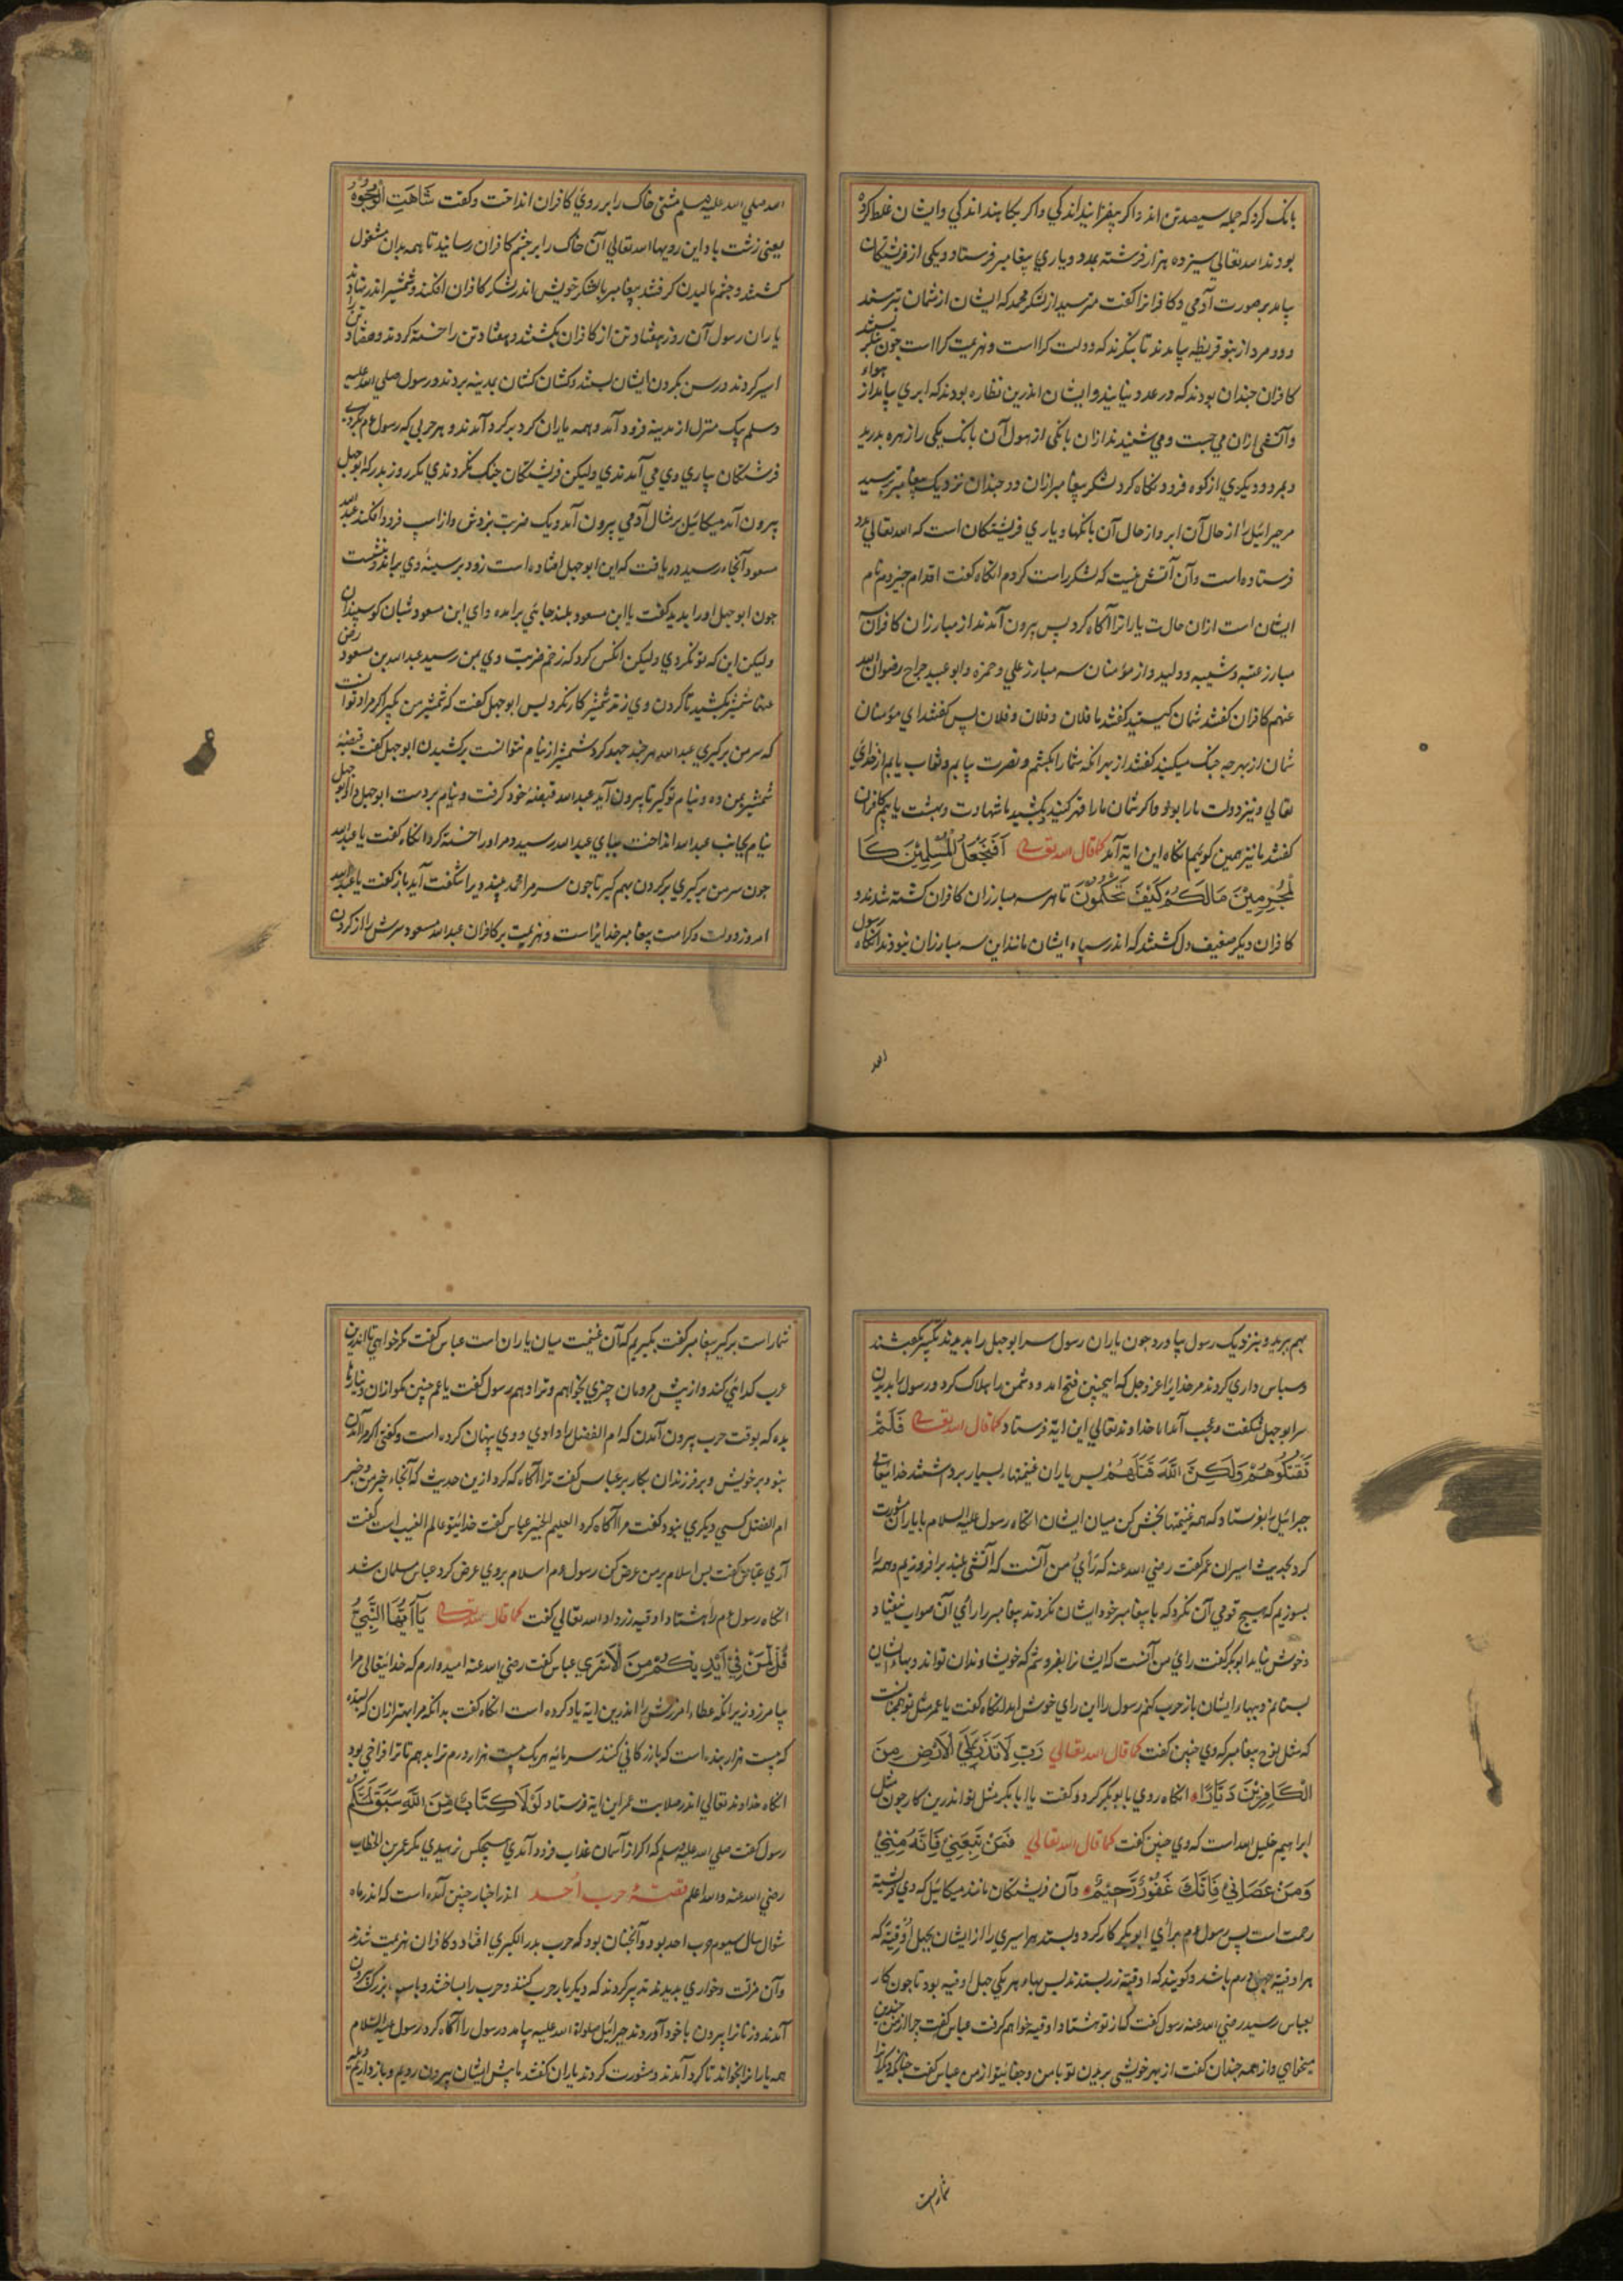 بانک کرد که جمله سیصد تن اند و اکر بیفزایند اندکی و اکر بکاهند اندکی و ایشان غلط کرده
بودند الله تعالی سیزده هزار فرشته بمدد و یاری پیغامبر فرستاد و یکی از فریشتکان
بیامد بر صورت آدمی و کافرانرا کفت مترسید از لشکر محمد که ایشان از شمان بترسند
و دو مرد از بنو قریظه بیامدند تا بنکرند که دولت کرا است و هزیمت کرا است چون بنکریستند
کافران چندان بودند که در عدد نیایند و ایشان اندرین نظاره بودند که ابری بیامد از هواء
و آتشی ازان می جست و می شنیدند ازان بانکی از هول آن بانک یکی را زهره بدرید
و بمرد و دیکری از کوه فرود نکاه کرد لشکر پیغامبر ازان دو چندان نزدیک پیغامبر پرسید
مر جبرائیل را از حال آن ابر و از حال آن بانکها و یاری فریشتکان است که الله تعالی بمدد
فرستاده است و آن آتش نیست که لشکر راست کردم انکاه کفت اقدام حیزوم نام
ایشان است ازان حالت یارانرا آکاه کرد پس بیرون آمدند از مبارزان کافران سه
مبارز عتبه و شیبه و ولید و از مؤمنان سه مبارز علی و حمزه و ابو عبید جراح رضوان الله
عنهم کافران کفتند شمان کیستید کفتند ما فلان و فلان و فلان پس کفتند ای مؤمنان
شمان از بهر چه جنک میکنید کفتند از بهر انکه شما را بکشیم و نصرت یابیم و ثواب یابیم از خدای
تعالی و نیز دولت ما را بود و اکر شمان ما را قهر کنید بکشید ما شهادت و بهشت یابیم کافران
کفتند ما نیز همین کوئیم انکاه این ایة آمد کما قال الله تعالی أَفَنَجْعَلُ الْمُسْلِمِيْنَ كَا
لْمُجْرِمِيْنَ مَالَكُمْ كَيْفَ تَحْكُمُوْنَ تا هر سه مبارزان کافران کشته شدند و
کافران دیکر ضعیف دل کشتند که اندر سپاه ایشان مانند این سه مبارزان نبودند انکاه رسول
الله
الله صلی الله علیه وسلم مشتی خاک را بر روی کافران انداخت و کفت شَاهَتِ الْوُجُوْهُ
یعنی زشت باد این رویها الله تعالی آن خاک را بر چشم کافران رسانید تا همه بدان مشغول
کشتند و چشم مالیدن کرفتند پیغامبر با لشکر خویش اندر لشکر کافران افکند و شمشیر اندر نهادند
یاران رسول آن روز هفتاد تن از کافران بکشتند و هفتاد تن را خسته کردند و هفتاد تن را
اسیر کردند و رسن بکردن ایشان بستند و کشان کشان بمدینه بردند و رسول صلی الله علیه
وسلم بیک منزل از مدینه فرود آمد و همه یاران کرد بر کرد آمدند و هر حربی که رسول عم بکردی
فرشتکان بیاری وی می آمدندی ولیکن فریشتکان جنک نکردندی مکر روز بدر که ابوجهل
بیرون آمد میکائیل بر مثال آدمی بیرون آمد و یک ضربت بزدش و از اسب فرود افکند عبدالله
مسعود آنجاء رسید دریافت که این ابوجهل افتاده است زود بر سینهٔ وی براند و بنشست
چون ابو جهل او را بدید کفت یا ابن مسعود بلند جایئی برامدهٔ وای ابن مسعود شبان کوسپندان
ولیکن این که تو نکردی ولیکن انکس کرد که زخم ضربت وی بمن رسید عبدالله بن مسعود رضی
عنهما شمشیر بکشید تا کردن وی زند شمشیر کار نکرد پس ابو جهل کفت که شمشیر من بکیر اکر مراد توانست
که سر من برکیری عبدالله هر چند جهد کرد شمشیر از نیام نتوانست برکشیدن ابو جهل کفت قبضهٔ
شمشیر بمن ده و نیام تو کیر تا بیرون آید عبدالله قبضهٔ خود کرفت و نیام بر دست ابو جهل داد ابوجهل
نیام بجانب عبدالله انداخت بپای عبدالله رسید و مر او را خسته کرد انکاء کفت یا عبدالله
چون سر من برکیری برکردن بهم کیر تا چون سر مرا محمد بیند ویرا شکفت آید باز کفت یا عبدالله
امروز دولت و کرامت پیغامبر خدایرا است و هزیمت بر کافران عبدالله مسعود سرش را از کردن
بهم برید و بنزدیک رسول بیاورد چون یاران رسول سر ابو جهل را بدیدند تکبیر بکفتند
و سپاس داری کردند مر خدایرا عز و جل که اینچنین فتح امد و دشمن را هلاک کرد و رسول را بدیدن
سر ابو جهل شکفت و عجب آمد اما خداوند تعالی این ایة فرستاد کما قال الله تعالی فَلَمْ
تَقْتُلُوْهُمْ وَلٰكِنَّ اللّٰهَ قَتَلَهُمْ پس یاران غنیمتهاء بسیار برداشتند خدایتعالی
جبرائیل را بفرستاد که همه غنیمتها بخش کن میان ایشان انکاه رسول علیه السلام با یاران مشورت
کرد بحدیث اسیران عمر کفت رضی الله عنه که رأی من آنست که آتشی بلند برافروزیم و همه را
بسوزیم که هیچ قومی آن نکرد که با پیغامبر خود ایشان نکردند پیغامبر را رای آن صواب نیفتاد
و خوش نیامد ابوبکر کفت رای من آنست که ایشانرا بفروشیم که خویشاوندان تواند و بهاء ایشان
بستانم و بهار ایشان باز حرب کنم رسول را این رای خوش امد انکاه کفت یا عمر مثل تو همچنانست
که مثل نوح پیغامبر که وی چنین کفت کما قال الله تعالی رَبِّ لَا تَذَرْ عَلَى الْاَرْضِ مِنَ
الْكَافِرِيْنَ دَيَّارًا انکاه روی بابوبکر کرد و کفت یا ابابکر مثل تو اندرین کار چون مثل
ابراهیم خلیل الله است که وی چنین کفت کما قال الله تعالی فَمَنْ تَبِعَنِيْ فَاِنَّهُ مِنِّيْ
وَمَنْ عَصَانِيْ فَاِنَّكَ غَفُوْرٌ رَّحِيْمٌ و آن فریشتکان مانند میکائیل که وی فرشتهٔ
رحمت است پس رسول عم برأی ابوبکر کار کرد و بستد هر اسیری را از ایشان بچهل اوقیة که
هر اوقیة چهل درم باشد و کویند که اوقیة زر بستدند پس بهاء هر یکی چهل اوقیه بود تا چون کار
بعباس رسید رضی الله عنه رسول کفت که از تو هشتاد اوقیه خواهم کرفت عباس کفت چرا از من چندین
میخواهی و از همه چندان کفت از بهر خویشی بریدن تو با من و جفائیتو از من عباس کفت
شماراست
شماراست برکیر پیغامبر کفت بکیریم که آن غنیمت میان یاران است عباس کفت مکر خواهی تا اندرین
عرب کدائی کند و از پیش مردمان چیزی بخواهم و ترا دهم رسول کفت یا عم چنین مکو ازان دینارها
بده که بوقت حرب بیرون آمدن که ام الفضل را دادی و وی پنهان کرده است و کفتی اکر مرا آمدن
نبود بر خویش و بر فرزندان بکار بر عباس کفت ترا آکاه که کرد ازین حدیث که آنجاء خبر من و خبر
ام الفضل کسی دیکری نبود کفت مرا آکاه کرد العلیم الخبیر عباس کفت خدائیتو عالم الغیب است کفت
آری عباس کفت پس اسلام بر من عرض کن رسول عم اسلام بروی عرض کرد عباس مسلمان شد
انکاه رسول عم را هشتاد اوقیه زر داد الله تعالی کفت کما قال الله تعالی يَآ اَيُّهَا النَّبِيُّ
قُلْ لِّمَنْ فِيْ اَيْدِيْكُمْ مِنَ الْاَسْرٰي عباس کفت رضی الله عنه امیدوارم که خدایتعالی مرا
بیامرزد زیرانکه عطاء امرزش را اندرین ایة یاد کرده است انکاه کفت بدانکه مرا بهتر ازان که بستد
که بیست هزار بنده است که بازرکانی کنند سرمایه هر یک بیست هزار درم ترا بدهم تا ترا فراخی بود
انکاه خداوند تعالی اندر صلابت عمر این ایة فرستاد لَوْلَا كِتَابٌ مِّنَ اللّٰهِ سَبَقَ لَمَسَّكُمْ
رسول کفت صلی الله علیه وسلم که اکر از آسمان عذاب فرود آمدی هیچکس نرهیدی مکر عمر بن الخطاب
رضی الله عنه والله اعلم قصّهٔ حرب اُحد اندر اخبار چنین آمده است که اندر ماه
شوال سال سیوم حرب احد بود و آنچنان بود که حرب بدر الکبری افتاد و کافران هزیمت شدند
و آن مذلت و خواری بدیدند تدبیر کردند که دیکر بار حرب کنند و حرب را بساختند و با سپاه بزرک بیرون
آمدند و زنانرا بیرون با خود آوردند جبرائیل صلواة الله علیه بیامد و رسول را آکاه کرد رسول علیه السلام
همه یارانرا بخواند تا کرد آمدند و مشورت کردند یاران کفتند ما پیش ایشان بیرون رویم و باز داریم